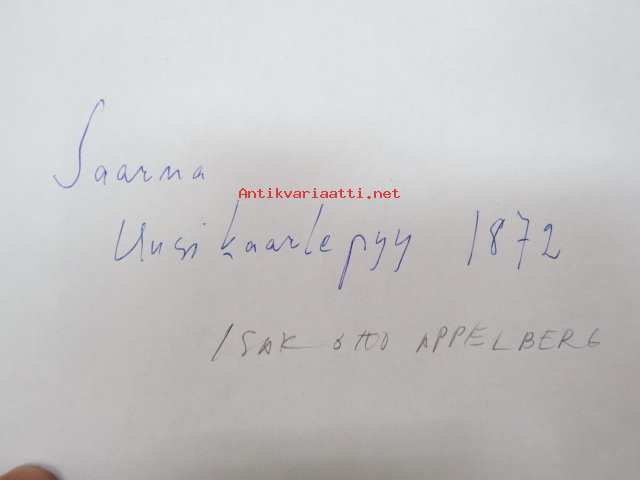 Saarna
Antikvariaatti.net
Uusikaarlepyy 1872
ISAK OTTO APPELBERG